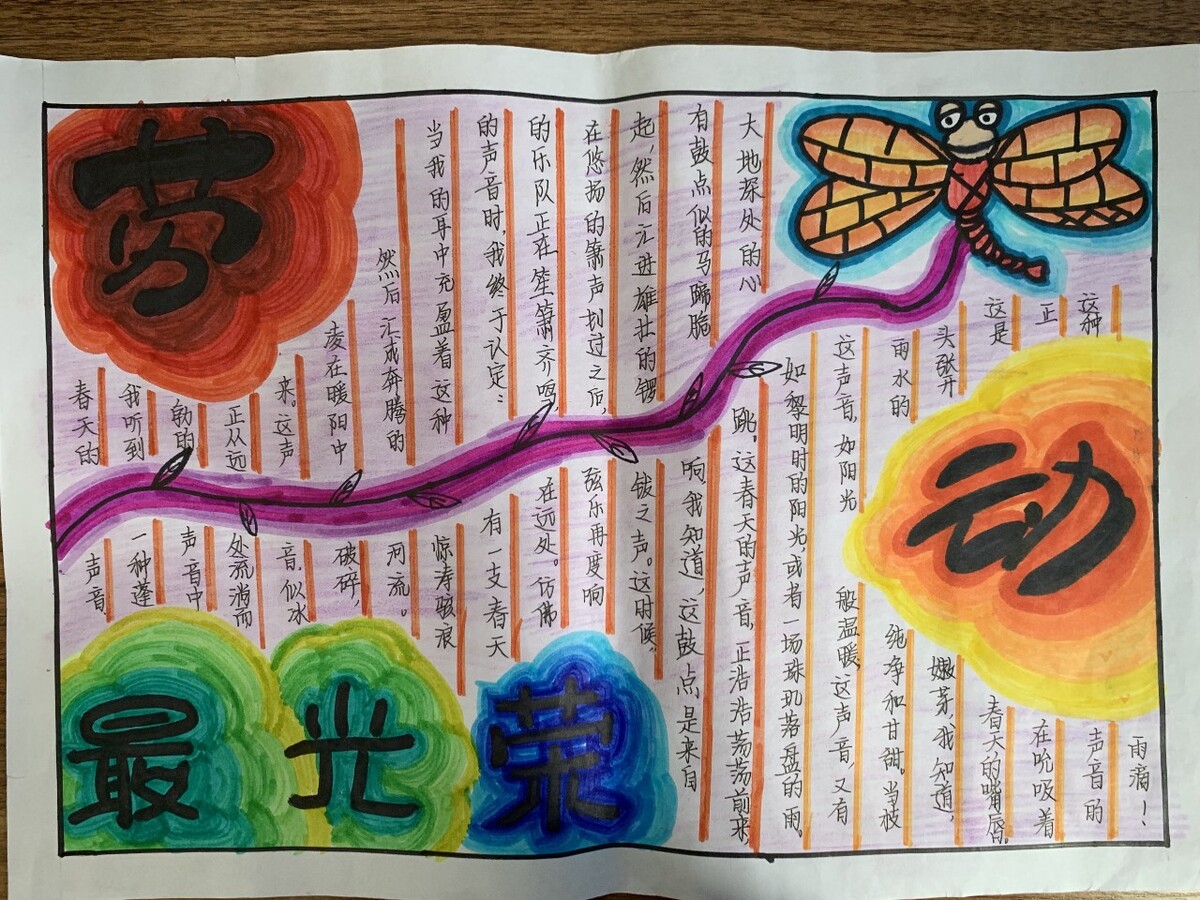 劳
动
最
光
荣
春天的声音
我听到一种蓬
勃的声音中
正从远处流淌而
来。这声音,似冰
凌在暖阳中破碎,
然后汇成奔腾的河流。
当我的耳中充盈着这种惊涛骇浪
的声音时,我终于认定:有一支春天
的乐队正在笙箫齐鸣在远处。仿佛
在悠扬的箫声划过之后,弦乐再度响
起,然后汇进雄壮的锣钹之声。这时候,
有鼓点似的马蹄脆响我知道,这鼓点是来自
大地深处的心跳。这春天的声音,正浩浩荡荡前来,
如黎明时的阳光,或者一场珠玑落盘的雨。
这声音,如阳光般温暖,这声音,又有
雨水的纯净和甘甜。当枝
头张开嫩芽,我知道,
这是春天的嘴唇。
正在吮吸着
这种声音的
雨滴!